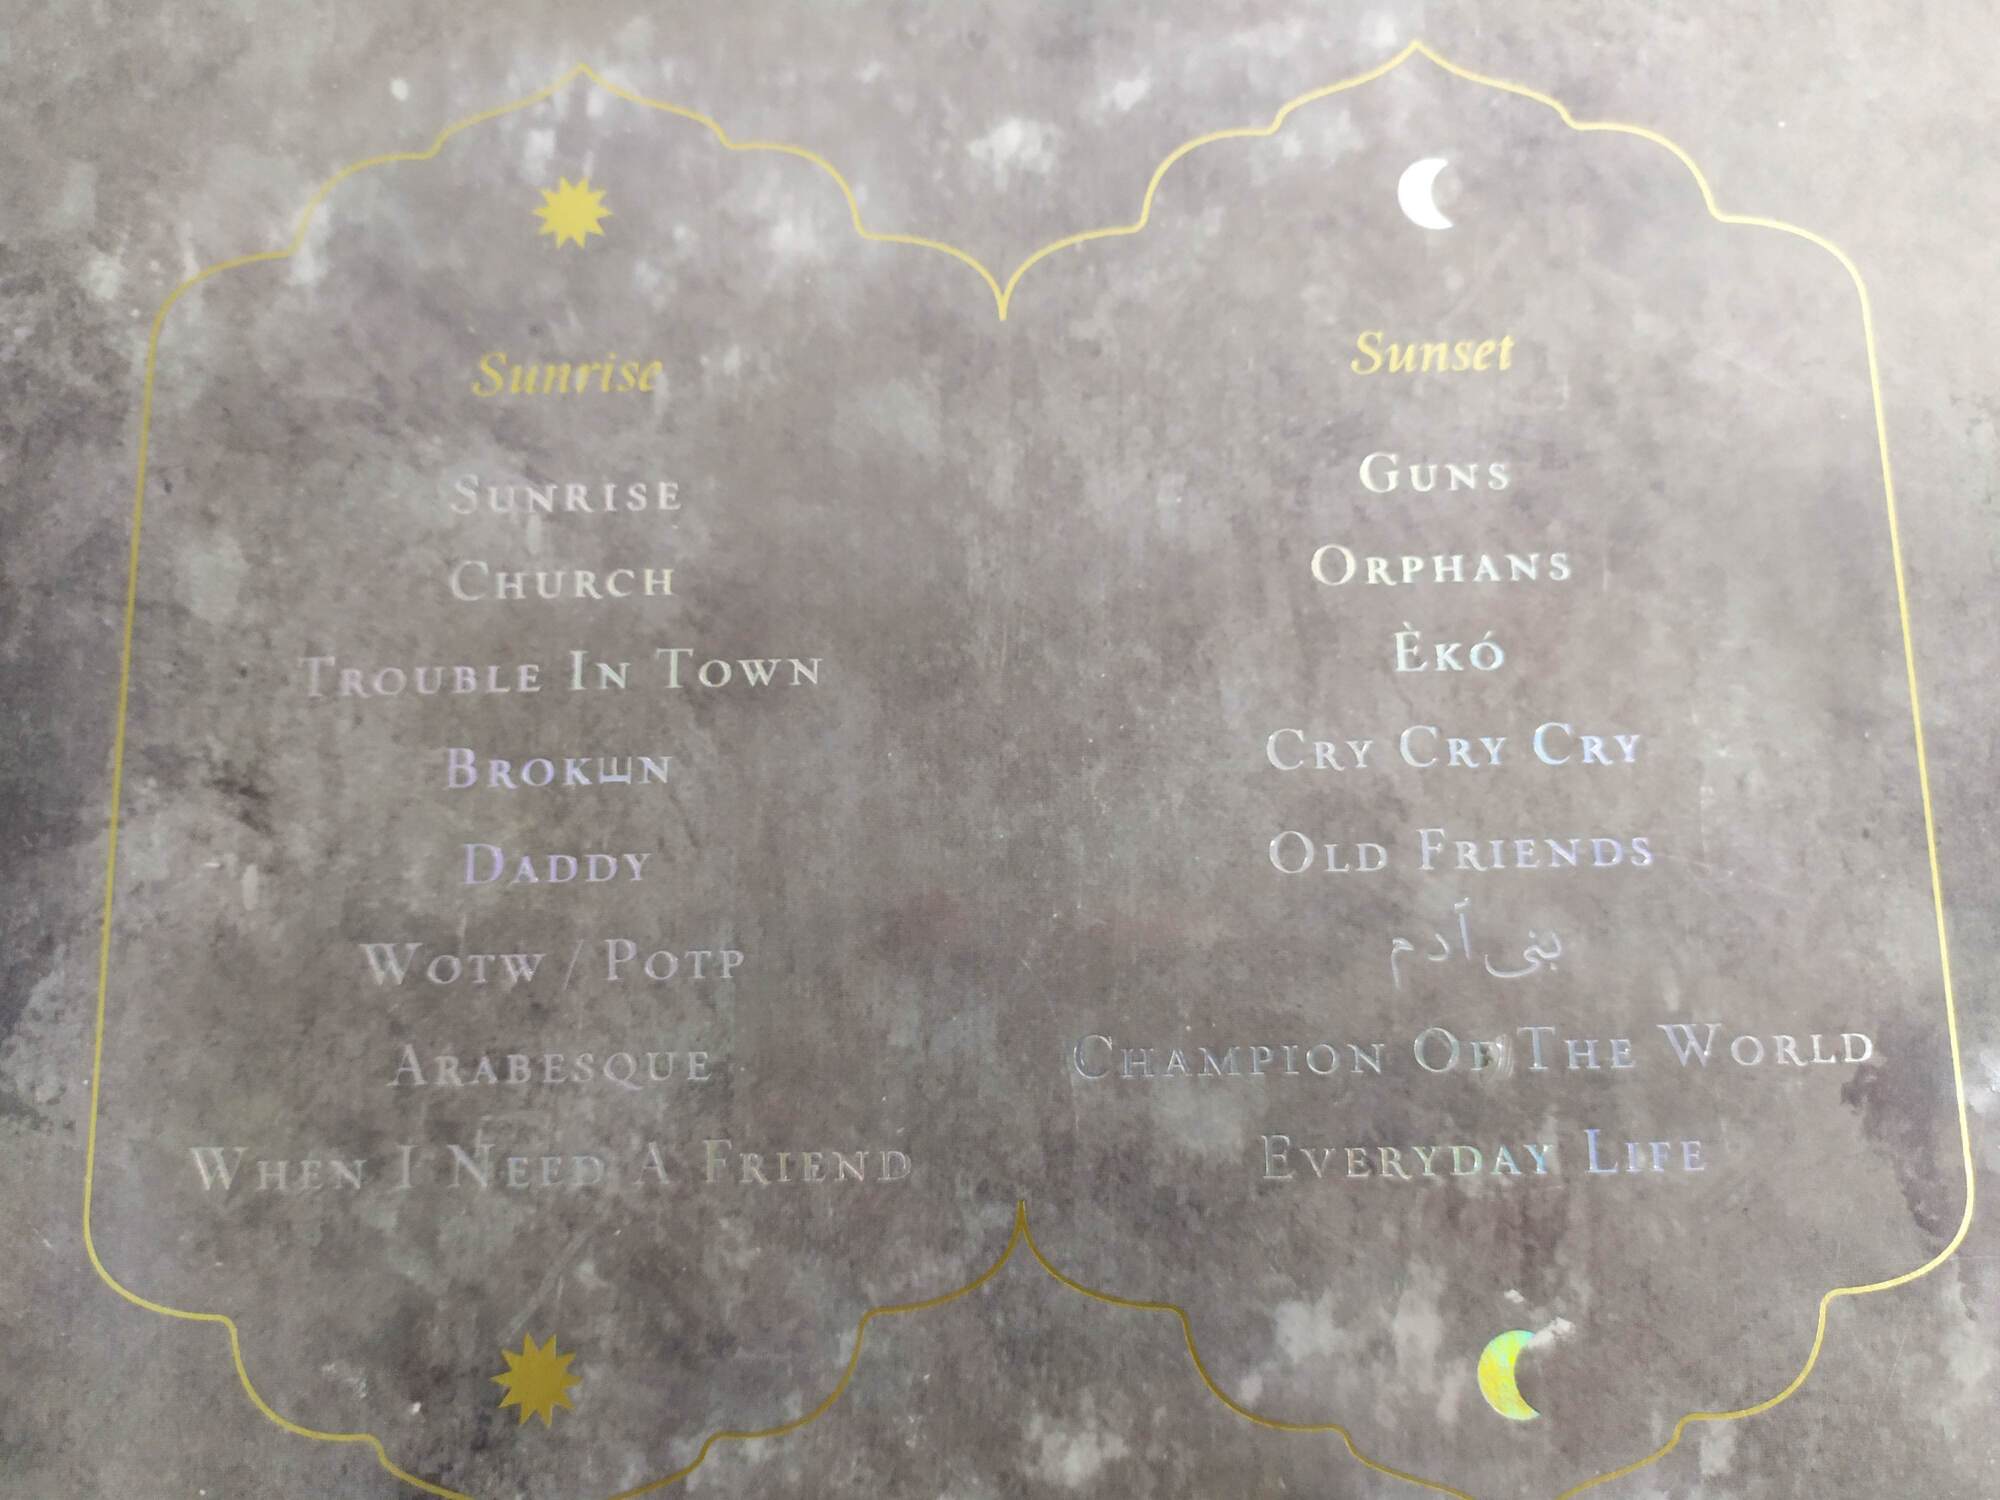 Sunrise
SUNRISE
CHURCH
TROUBLE IN TOWN
BROKШN
DADDY
WOTW / POTP
ARABESQUE
WHEN I NEED A FRIEND
Sunset
GUNS
ORPHANS
ÈKÓ
CRY CRY CRY
OLD FRIENDS
بنی آدم
CHAMPION OF THE WORLD
EVERYDAY LIFE